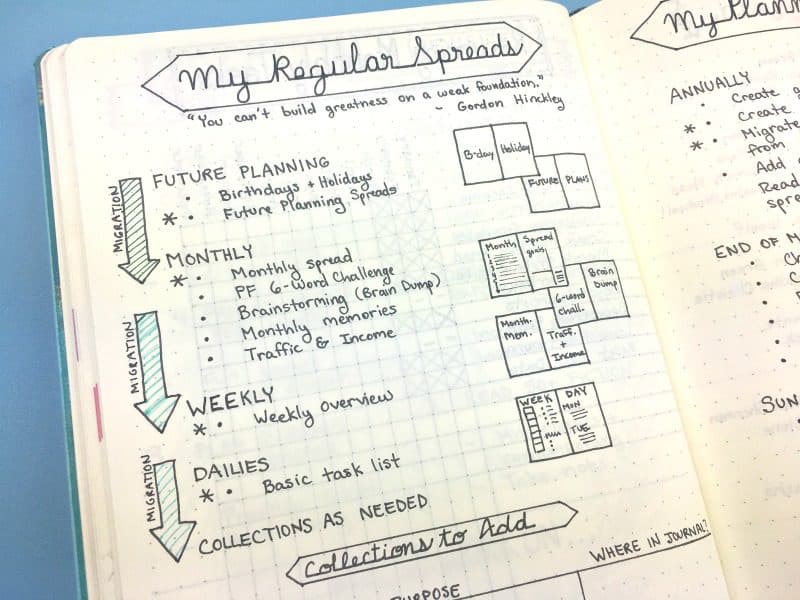 My Regular Spreads
"You can't build greatness on a weak foundation."
~ Gordon Hinckley
FUTURE PLANNING
• Birthdays + Holidays
* • Future Planning Spreads
MIGRATION
MONTHLY
* • Monthly spread
• PF 6-Word Challenge
• Brainstorming (Brain Dump)
• Monthly memories
• Traffic & Income
MIGRATION
WEEKLY
* • Weekly overview
MIGRATION
DAILIES
* • Basic task list
COLLECTIONS AS NEEDED
B-day
Holiday
FUTURE
PLANS
Month
Spread
goals
6-word
chall.
Brain
Dump
Month.
Mem.
Traff.
+
Income
WEEK
DAY
MON
TUE
Collections to Add
PURPOSE
WHERE IN JOURNAL?
My
ANNUALLY
• Create
* • Create
* • Migrate
from
• Add
• Read
END OF
SUN